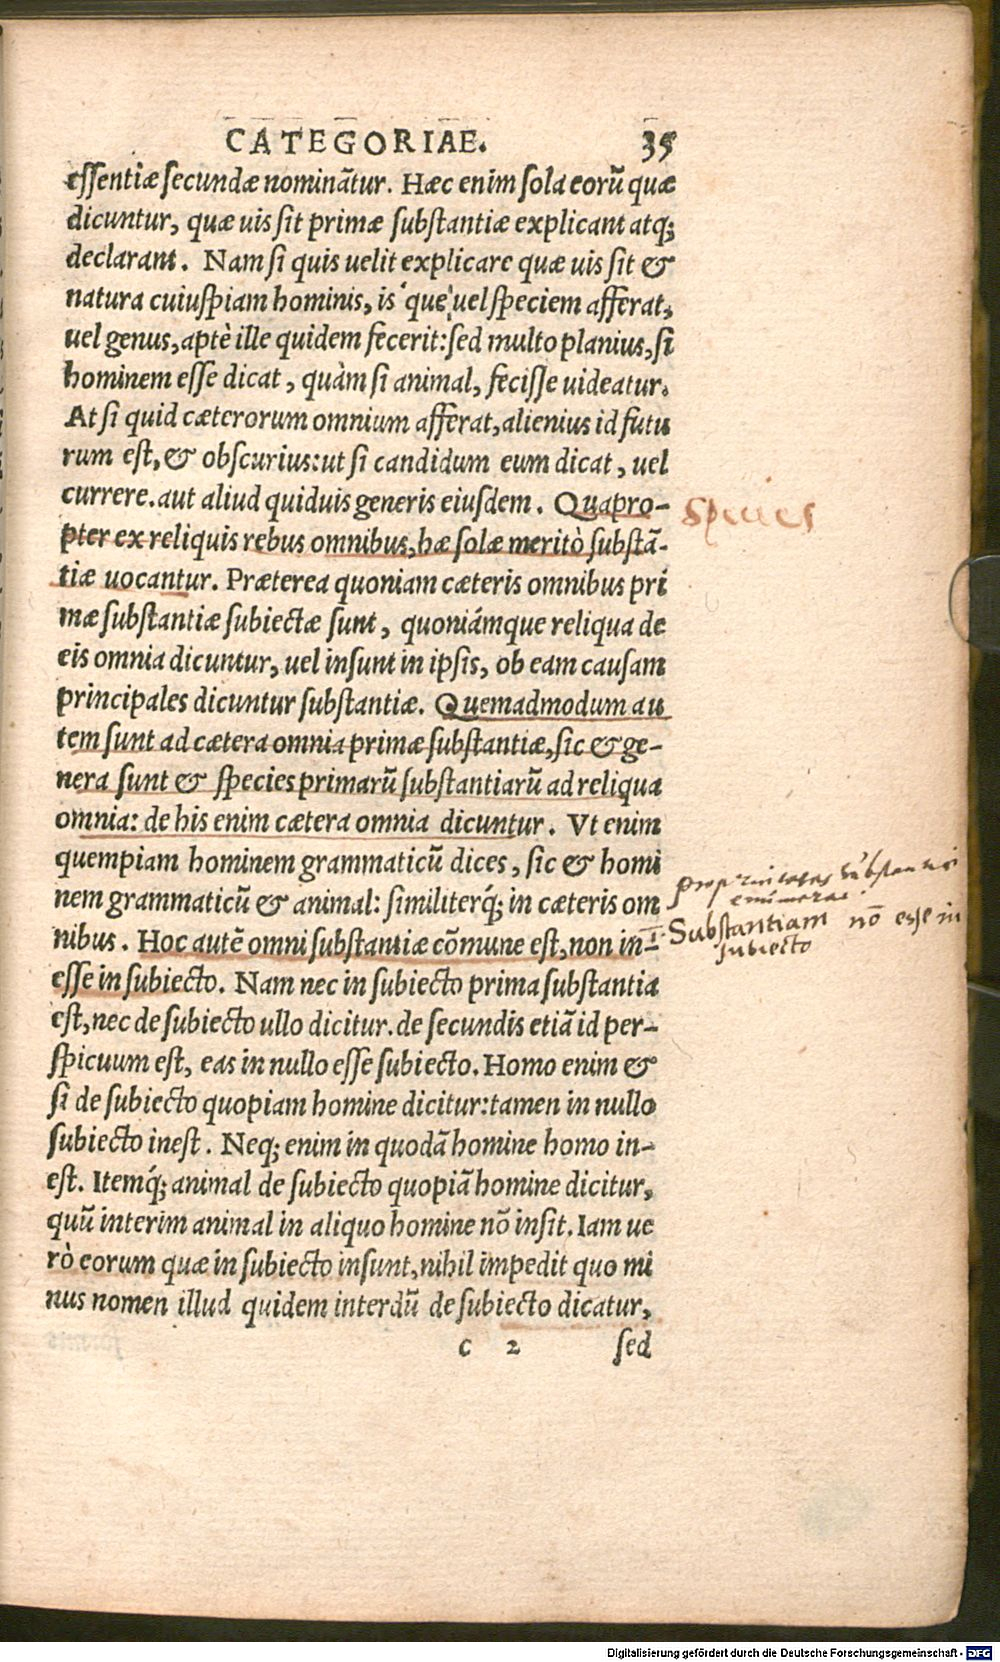 CATEGORIAE. 35
essentiæ secundæ nominãtur. Hæc enim sola eorũ quæ
dicuntur, quæ uis sit primæ substantiæ explicant atq;
declarant. Nam si quis uelit explicare quæ uis sit &
natura cuiuspiam hominis, is que uel speciem afferat,
uel genus, aptè ille quidem fecerit: sed multo planius, si
hominem esse dicat, quàm si animal, fecisse uideatur.
At si quid cæterorum omnium afferat, alienius id futu
rum est, & obscurius: ut si candidum eum dicat, uel
currere. aut aliud quiduis generis eiusdem. Quapro-
pter ex reliquis rebus omnibus, hæ solæ meritò substã-
tiæ uocantur. Præterea quoniam cæteris omnibus pri
mæ substantiæ subiectæ sunt, quoniámque reliqua de
eis omnia dicuntur, uel insunt in ipsis, ob eam causam
principales dicuntur substantiæ. Quemadmodum au
tem sunt ad cætera omnia primæ substantiæ, sic & ge-
nera sunt & species primarũ substantiarũ ad reliqua
omnia: de his enim cætera omnia dicuntur. Vt enim
quempiam hominem grammaticũ dices, sic & homi
nem grammaticũ & animal: similiterq́; in cæteris om
nibus. Hoc autẽ omni substantiæ cõmune est, non in-
esse in subiecto. Nam nec in subiecto prima substantia
est, nec de subiecto ullo dicitur. de secundis etiã id per-
spicuum est, eas in nullo esse subiecto. Homo enim &
si de subiecto quopiam homine dicitur: tamen in nullo
subiecto inest. Neq; enim in quodã homine homo in-
est. Itemq́; animal de subiecto quopiã homine dicitur,
quũ interim animal in aliquo homine nõ insit. Iam ue
rò eorum quæ in subiecto insunt, nihil impedit quo mi
nus nomen illud quidem interdũ de subiecto dicatur,
c 2 sed
species
proprietates substantiæ
I. Substantiam nõ esse in
subiecto
Digitalisierung gefördert durch die Deutsche Forschungsgemeinschaft - DFG